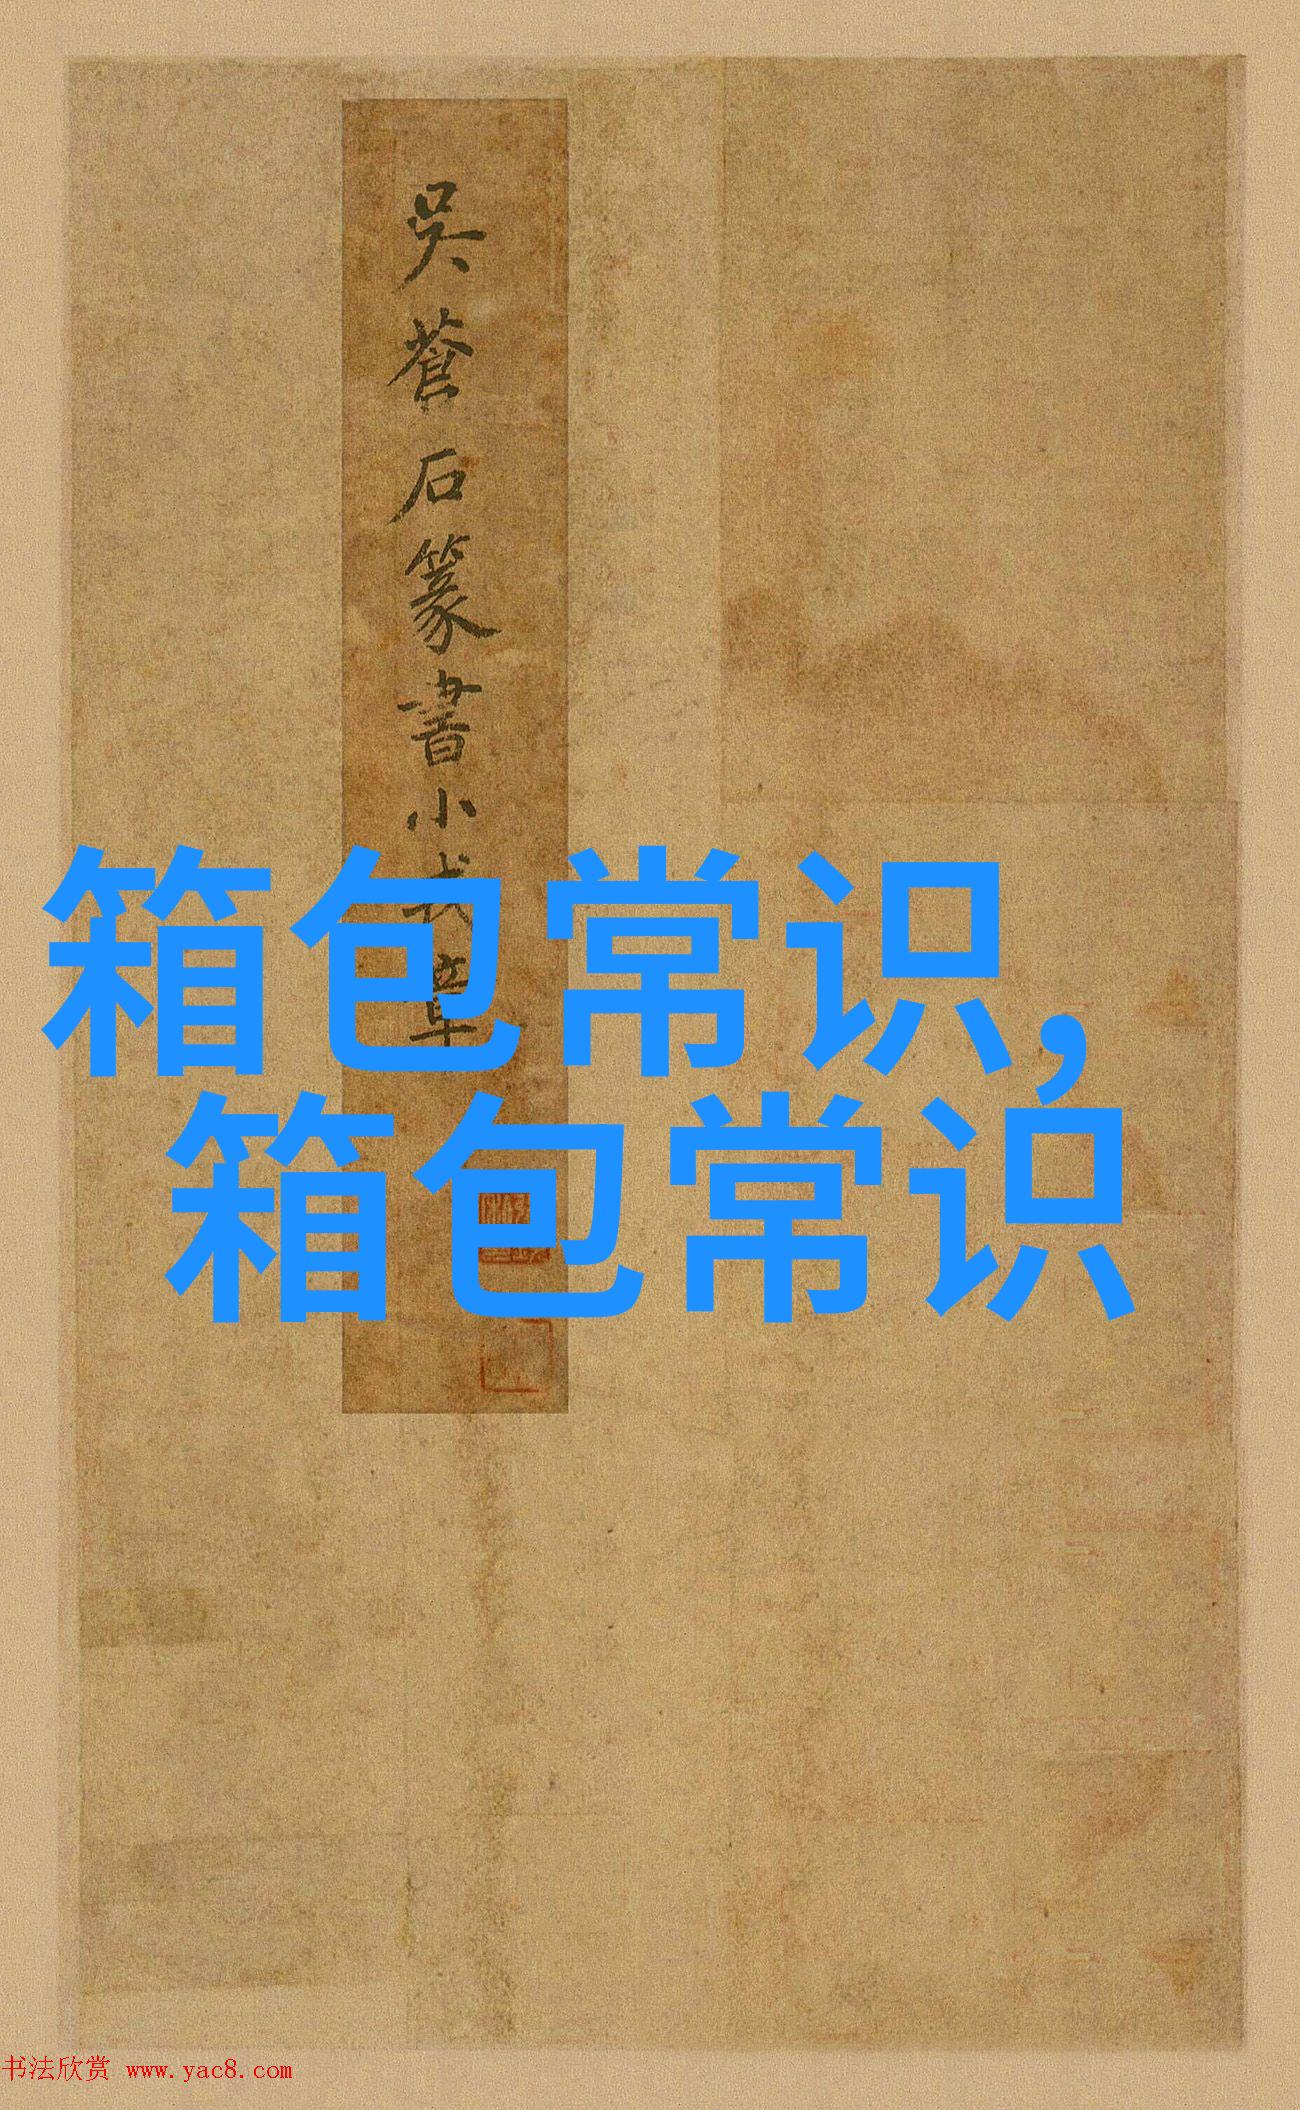 吳蒼石篆書小戎章
箱包常识,
箱包常识
书法欣赏 www.yac8.com